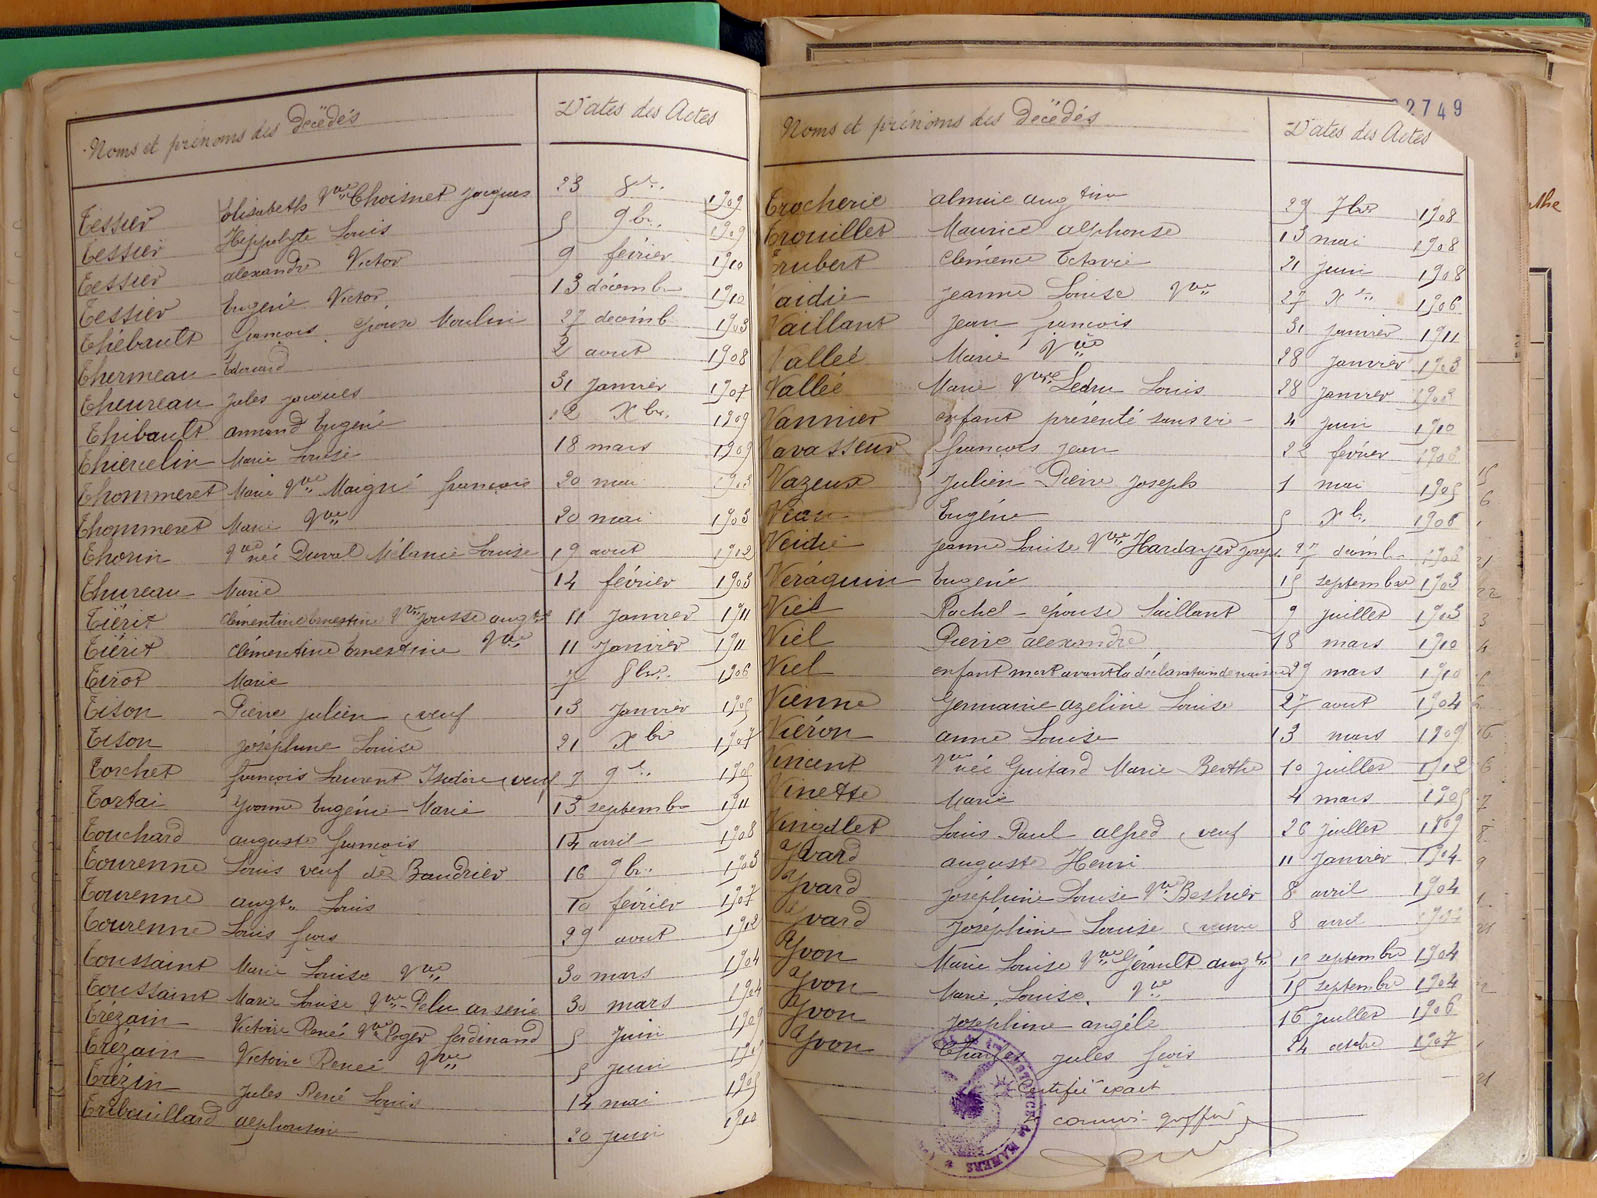 Noms et prénoms des Décédés Dates des Actes
Tessier Elisabeth Vve Choisnet Jacques 23 8bre 1909
Tessier Hippolyte Louis 5 9bre 1909
Tessier alexandre Victor 9 février 1910
Tessier Eugénie Victor 13 décembre 1910
Thébault François Epouse Moulin 27 décemb. 1903
Thermeau Edouard 2 aout 1908
Theureau Jules Jacques 31 Janvier 1907
Thibault armand Eugené 22 Xbre 1909
Thierelin Marie Louise 18 mars 1909
Thommeret Marie Vve Maigné françois 20 mai 1903
Thommeret Marie Vve 20 mai 1903
Thorin Vve née Duval Mélanie Louise 19 aout 1912
Thureau Marie 14 février 1903
Tiérit Clémentine Ernestine Vve Jousse augte 11 Janvier 1911
Tiérit Clémentine Ernestine Vve 11 Janvier 1911
Tirot Marie 7 8bre 1906
Tison Pierre Julien veuf 13 Janvier 1905
Tison Joséphine Louise 21 Xbre 1907
Torchet françois Laurent Isidore veuf 7 9bre 1905
Tortai Yvonne Eugénie Marie 13 septembre 1911
Touchard auguste françois 14 avril 1908
Tourenne Louis veuf de Baudrier 16 9bre 1903
Tourenne augte Louis 10 février 1907
Tourenne Louis fçois 29 aout 1912
Toussaint Marie Louise Vve 30 mars 1904
Toussaint Marie Louise Vve Pelu arsène 30 mars 1904
Trézain Victoire René Vve Roger ferdinand 5 Juin 1905
Trézain Victoire Renée Vve 5 Juin 1905
Trézin Jules René Louis 14 mai 1905
Tribouillard alphonsine 20 Juin 1910
2749
Noms et prénoms des Décédés Dates des Actes
Trocherie almire augtin 29 7bre 1908
Trouillet Maurice alphonse 13 mai 1908
Trubert Clémence Octavie 21 Juin 1908
Vaidie Jeanne Louise Vve 27 Xbre 1906
Vaillant Jean françois 31 Janvier 1911
Valleé Marie Vve 28 Janvier 1903
Valleé Marie Vve Ledru Louis 28 Janvier 1903
Vannier enfant présenté sans vie 4 Juin 1910
Vavasseur françois Jean 22 février 1908
Vazeux Julien Pierre Joseph 1 mai 1905
Viau Eugénie 5 Xbre 1906
Veidie Jeanne Louise Vve Joseph 27 décemb.
Véraquin Eugénie 15 septembre 1903
Viel Rachel Epouse Saillant 9 Juillet 1903
Viel Pierre alexandre 18 mars 1910
Viel enfant mort avant la déclaration de naissance 29 mars 1910
Vienne Germaine azeline Louise 27 aout 1904
Viéron anne Louise 13 mars 1909
Vincent Vve née Guitard Marie Berthe 10 Juillet 1912
Vinette Marie 4 mars 1905
Vingtlet Louis Paul alfred veuf 26 Juillet 1809
Yvard auguste Henri 11 Janvier 1904
Yvard Joséphine Louise Vve Bethier 8 avril 1904
Yvard Joséphine Louise veuve 8 avril
Yvon Marie Louise Vve Gérault augte 15 septembre 1904
Yvon Marie Louise Vve 15 septembre 1904
Yvon Joséphine angéle 16 Juillet 1906
Yvon Charles Jules fçois 24 octobre 1907
certifié exact
commis greffier
MAMERS